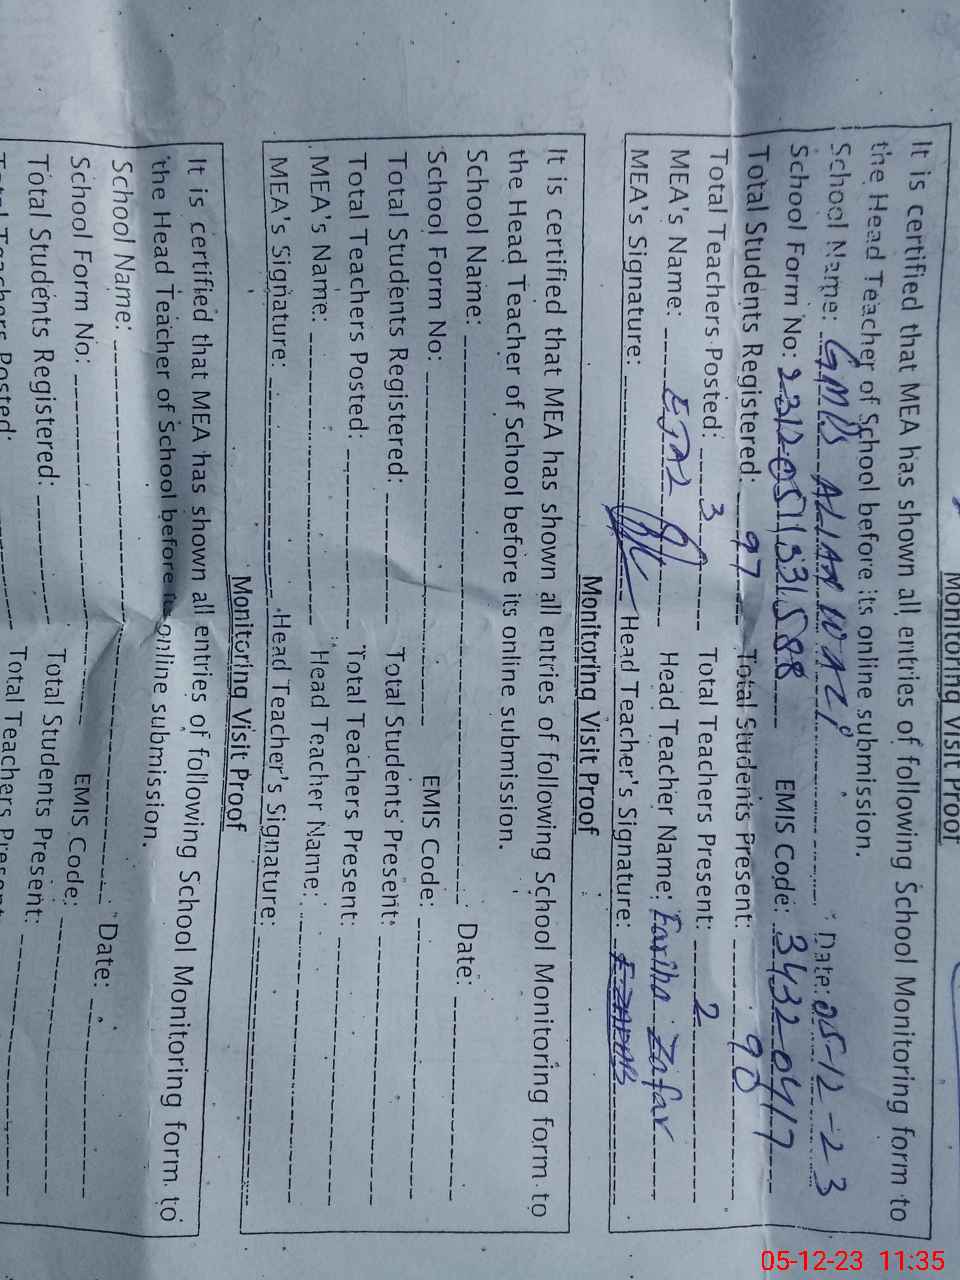 Monitoring Visit Proof
It is certified that MEA has shown all entries of following School Monitoring form to
the Head Teacher of School before its online submission.
School Name: GMPS ALIAN WALI Date: 05-12-23
School Form No: EMIS Code: 34320417
Total Students Registered: 97 Total Students Present: 90
Total Teachers Posted: 3 Total Teachers Present: 2
MEA's Name: EJAZ Head Teacher Name: Fariha Zafar
MEA's Signature: Head Teacher's Signature:
Monitoring Visit Proof
It is certified that MEA has shown all entries of following School Monitoring form to
the Head Teacher of School before its online submission.
School Name: Date:
School Form No: EMIS Code:
Total Students Registered: Total Students Present:
Total Teachers Posted: Total Teachers Present:
MEA's Name: Head Teacher Name:
MEA's Signature: Head Teacher's Signature:
Monitoring Visit Proof
It is certified that MEA has shown all entries of following School Monitoring form to
the Head Teacher of School before its online submission.
School Name: Date:
School Form No: EMIS Code:
Total Students Registered: Total Students Present:
Total Teachers Posted: Total Teachers Present:
05-12-23 11:35